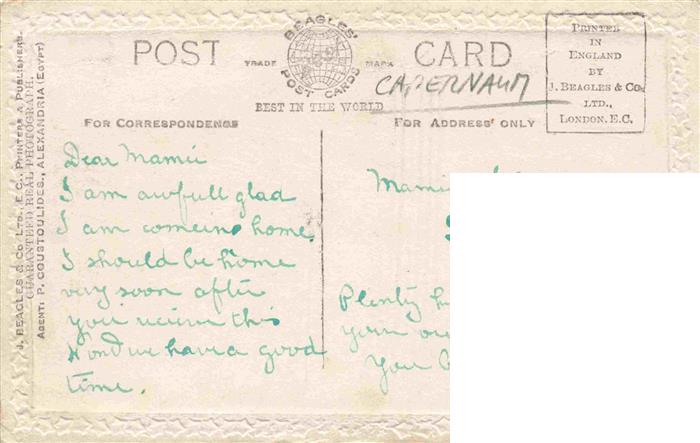 J. BEAGLES & Co., LTD., E.C., PRINTERS & PUBLISHERS.
GUARANTEED REAL PHOTOGRAPH.
AGENT: P. COUSTOULIDES, ALEXANDRIA (EGYPT)
POST CARD
TRADE MARK
BEAGLES'
POST CARDS
BEST IN THE WORLD
CAPERNAUM
PRINTED
IN
ENGLAND
BY
J. BEAGLES & CO.
LTD.,
LONDON, E.C.
FOR CORRESPONDENCE
FOR ADDRESS ONLY
Dear Mamie
I am awfull glad
I am comeing home.
I should be home
very soon after
you recieve this
Wond we have a good
time.
Plenty
your
You